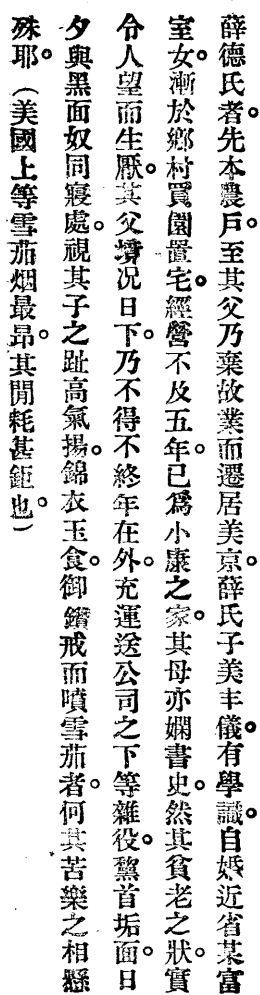 薛德氏者。先本農戶。至其父乃棄故業而遷居美京。薛氏子美丰儀。有學識。自婚近省某富
室女。漸於鄉村買園置宅。經營不及五年。已爲小康之家。其母亦嫻書史。然其貧老之狀。實
令人望而生厭。其父境况日下。乃不得不終年在外。充運送公司之下等雜役。黧首垢面。日
夕與黑面奴同寢處。視其子之趾高氣揚。錦衣玉食。御鑽戒而噴雪茄者。何其苦樂之相懸
殊耶。（美國上等雪茄烟最昂。其開耗甚鉅也。）